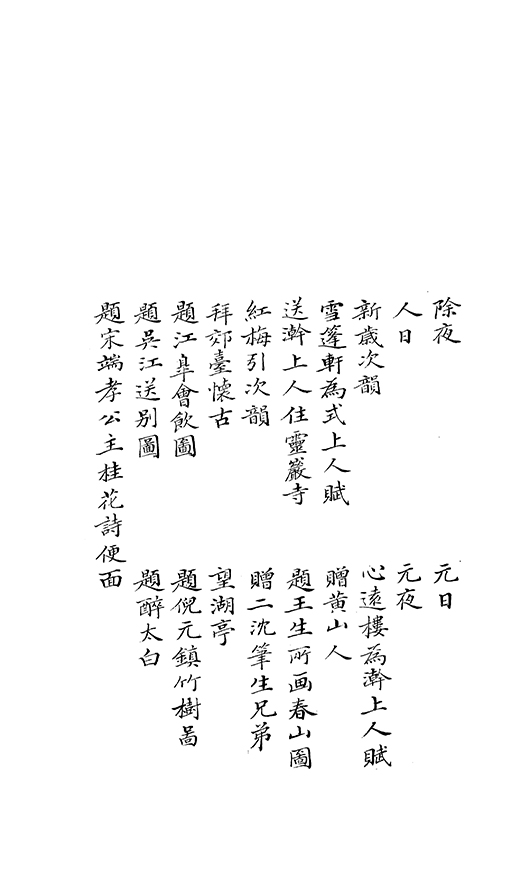 除夜
元日
人日
元夜
新歲次韻
心遠樓為澣上人賦
雪篷軒為式上人賦
贈黄山人
送澣上人住靈巖寺
題王生所画春山圖
紅梅引次韻
贈二沈筆生兄弟
拜郊臺懷古
望湖亭
題江臯會飲圖
題倪元鎮竹樹啚
題吳江送别圖
題醉太白
題宋端孝公主桂花詩便面